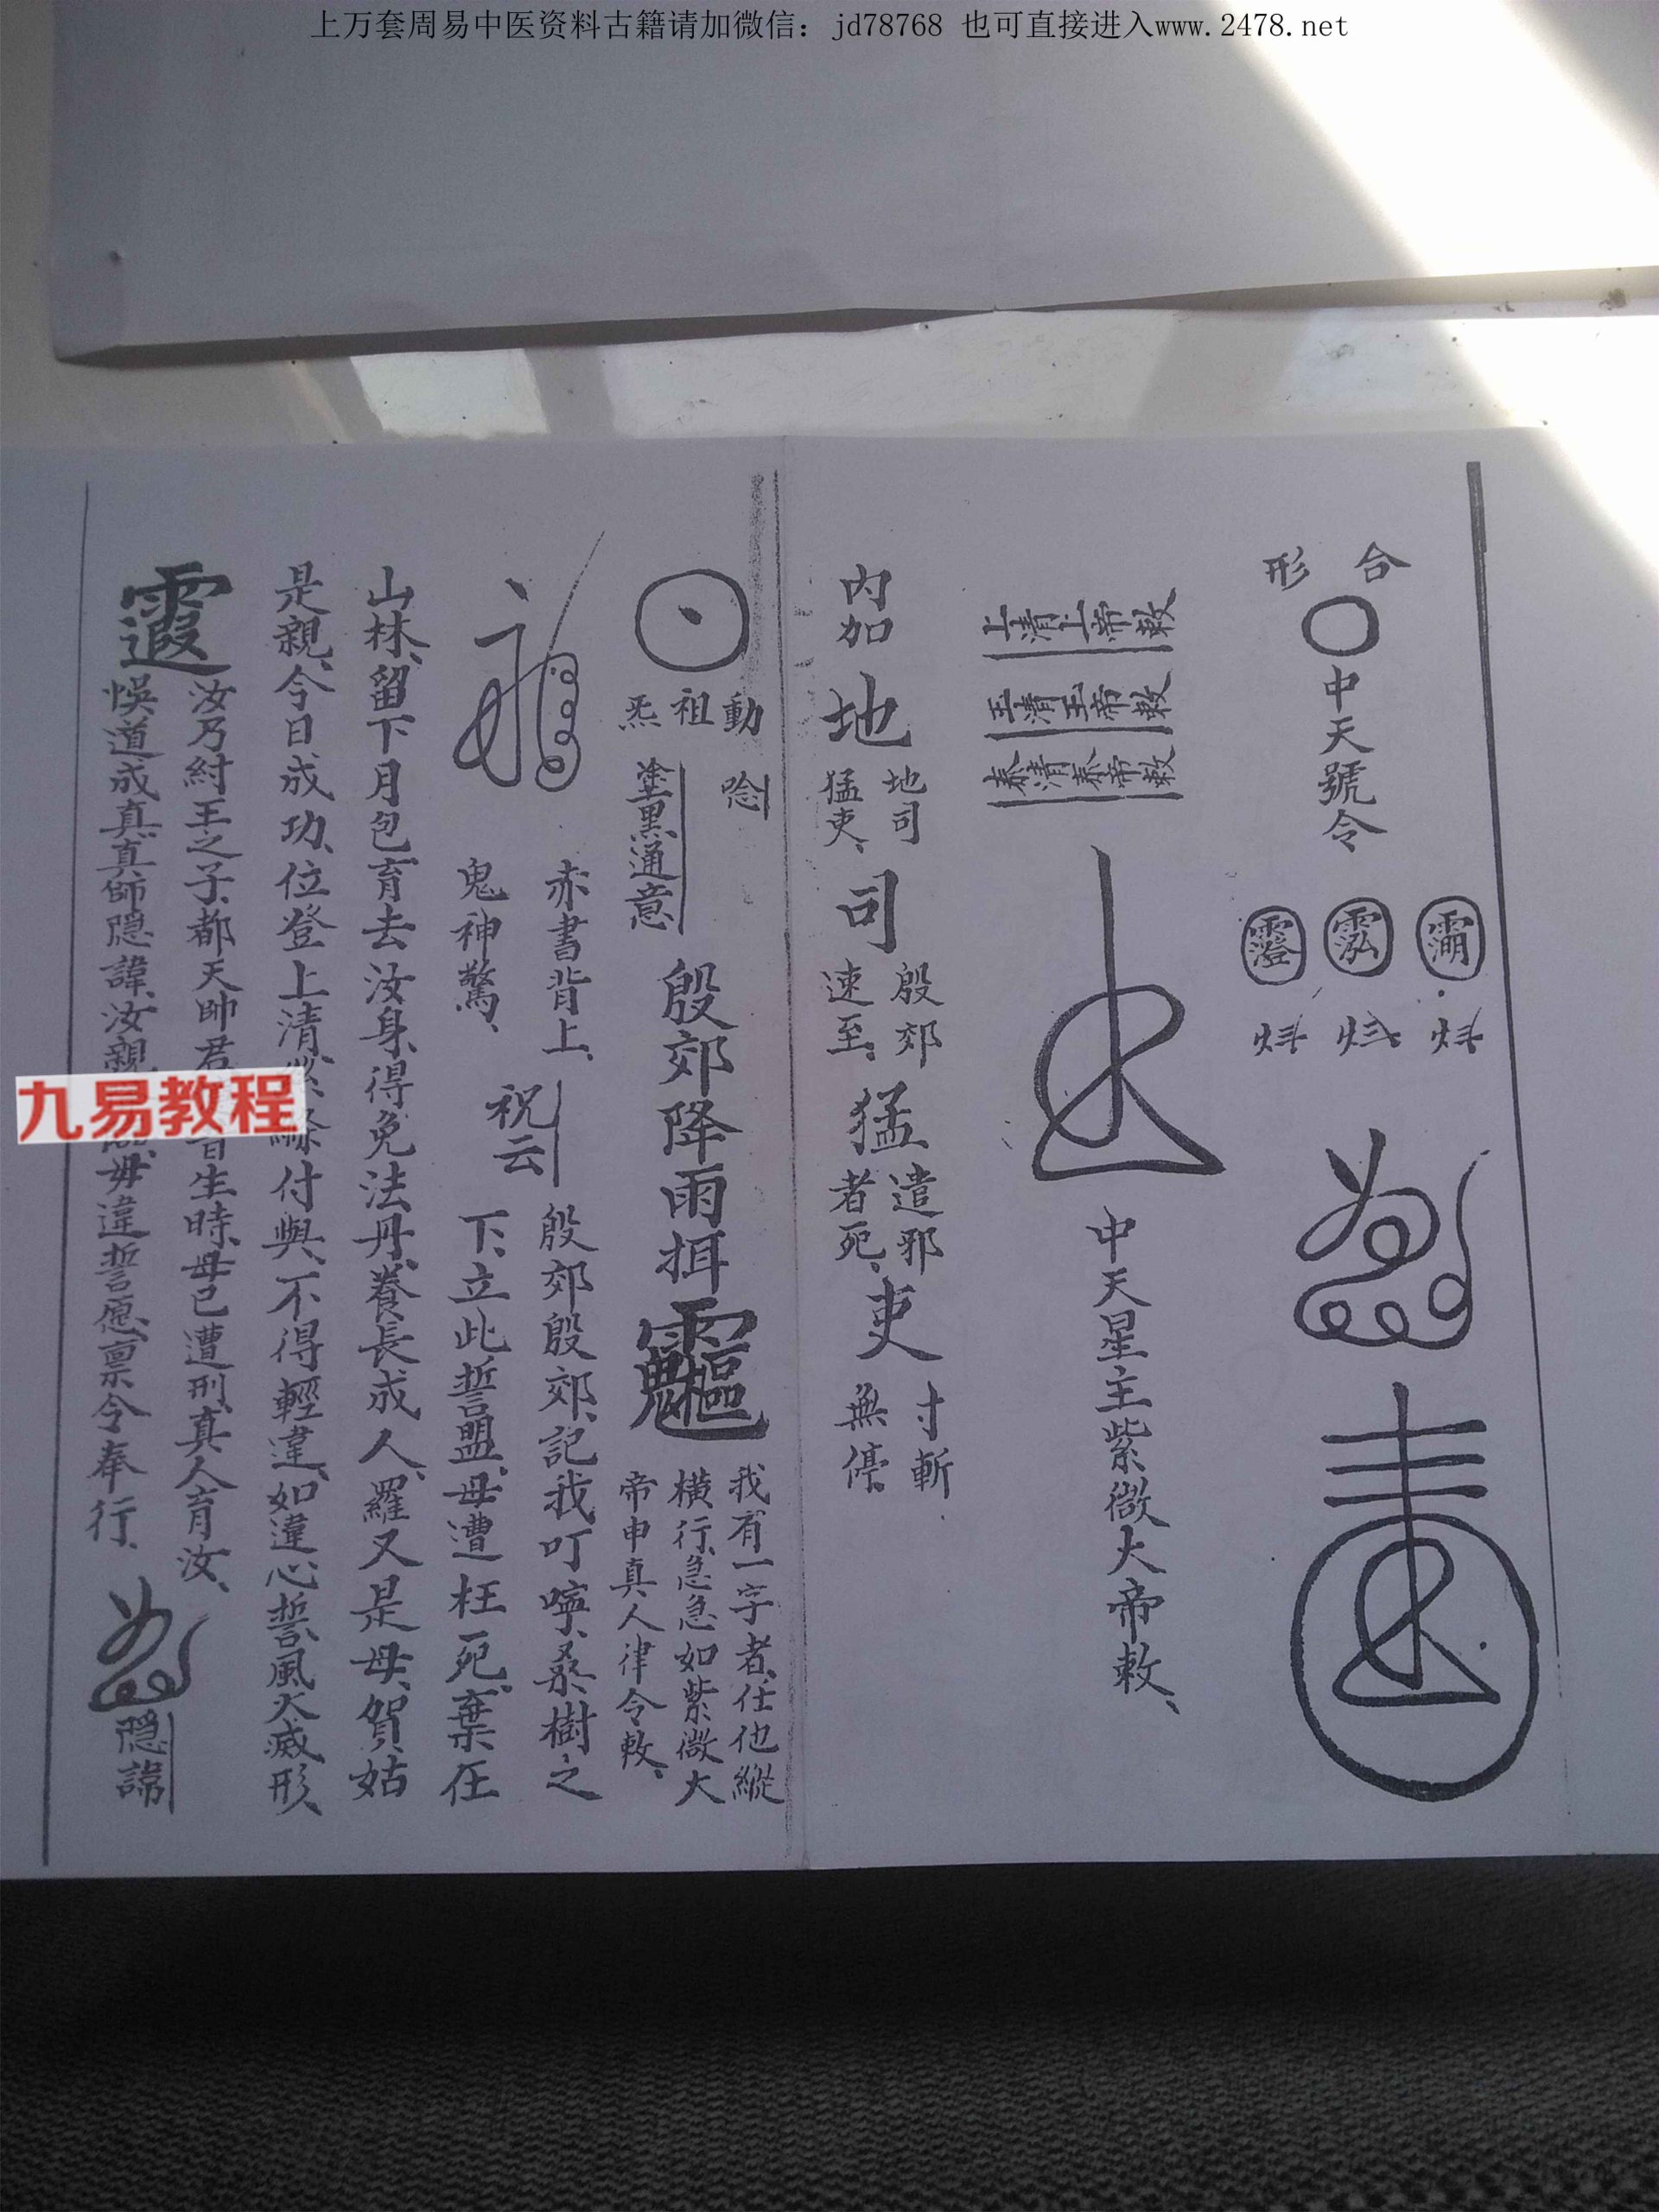 上万套周易中医资料古籍请加微信：jd78768 也可直接进入www.2478.net
合形
中天號令
上清上帝敕
玉清玉帝敕
泰清泰帝敕
中天星主紫微大帝敕、
内加
地 地司猛吏、
司 殷郊速至、
猛 遣邪者死、
吏 寸斬無停
動祖炁
唸
塗黑通意
殷郊降雨揖
我有一字者、任他縱
橫行、急急如紫微大
帝申真人律令敕、
赤書背上、
鬼神驚、
祝云
殷郊殷郊、記我叮嚀、桑樹之
下、立此誓盟、母遭枉死、棄在
山林、留下月包育去汝身、得免法丹、養長成人、羅叉是母、賀姑
是親、今日成功、位登上清、付與、不得輕違、如違心誓、風火滅形、
霞
汝乃紂王之子、都天帥君、生時、母已遭刑、真人育汝、
悞道成真、真師隱諱、汝親毋違誓愿、禀令奉行、
隱諱
九易教程